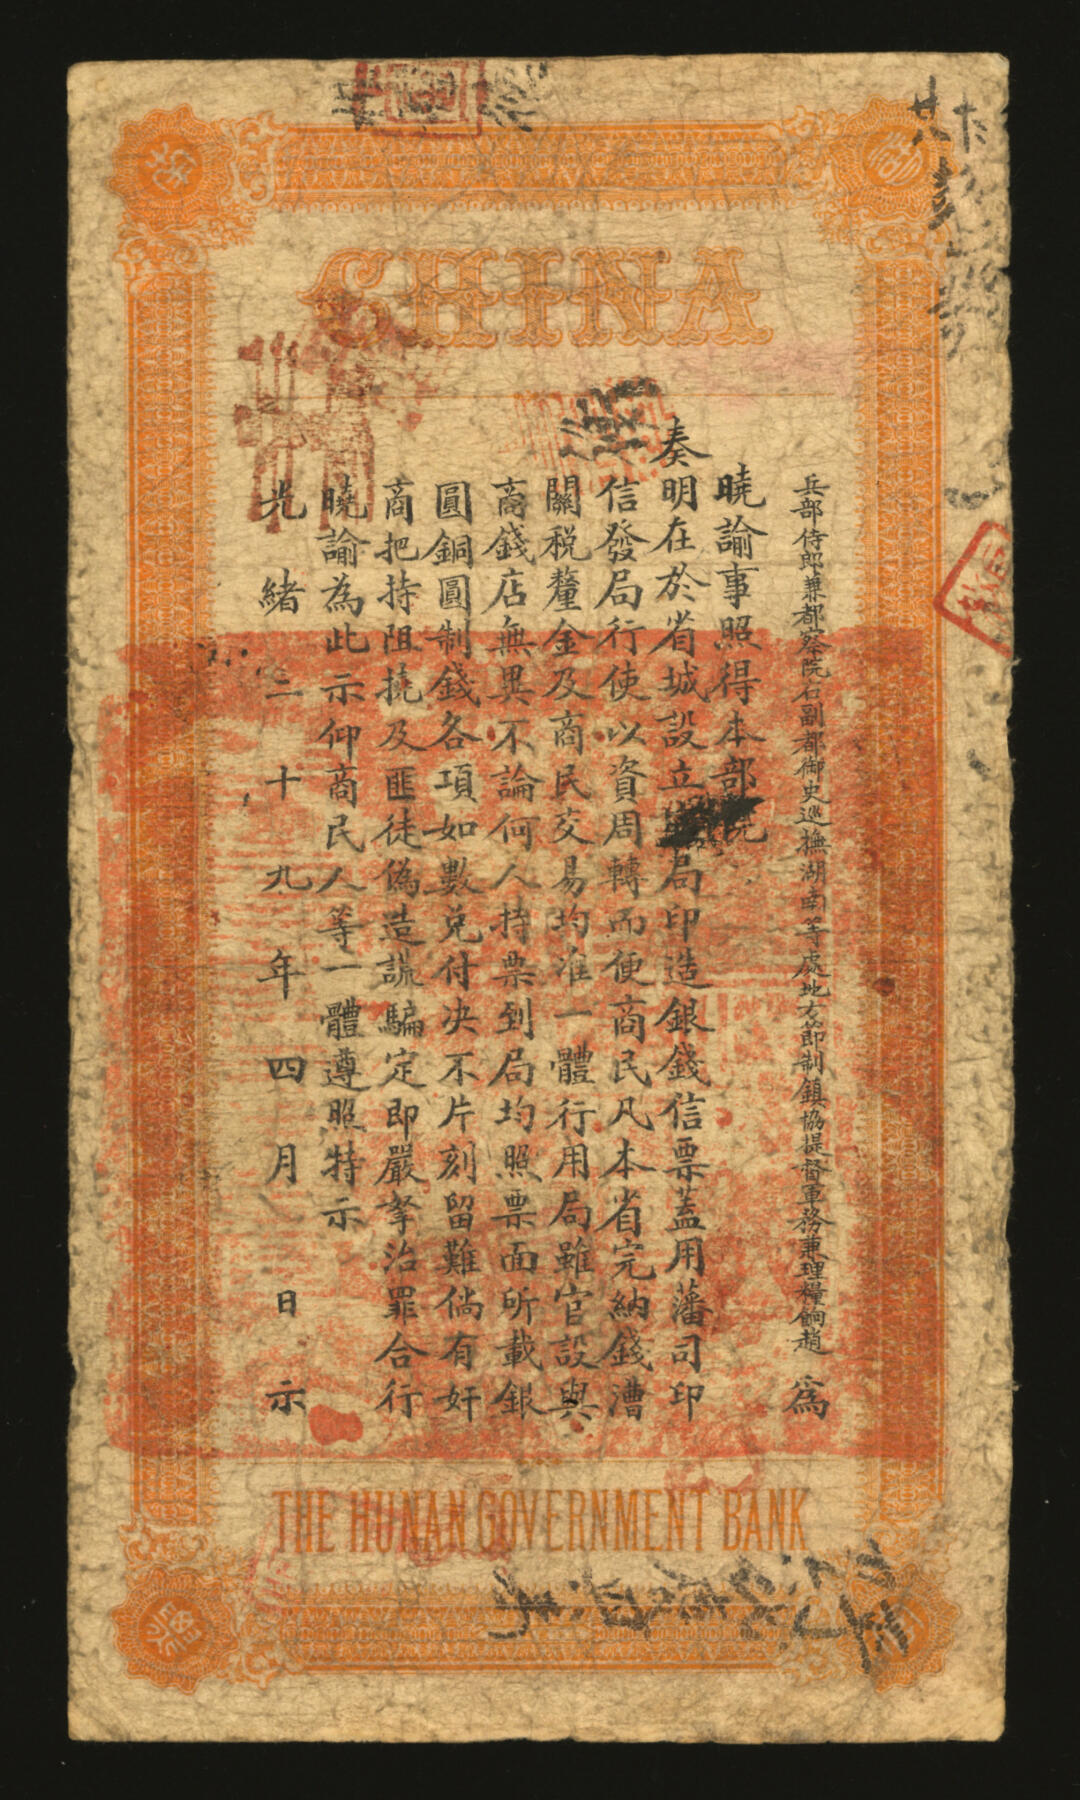 CHINA
兵部侍郎兼都察院右副都御史巡撫湖南等處地方節制鎮協提督軍務兼理糧餉趙 為
曉諭事照得本部院
奏明在於省城設立 局印造銀錢信票蓋用藩司印
信發局行使以資周轉而便商民凡本省完納錢漕
關稅釐金及商民交易均准一體行用局雖官設與
商錢店無異不論何人持票到局均照票面所載銀
圓銅圓制錢各項如數兌付決不片刻留難倘有奸
商把持阻撓及匪徒偽造謊騙定即嚴拏治罪合行
曉諭為此示仰商民人等一體遵照特示
光緒二十九年四月 日示
THE HUNAN GOVERNMENT BANK